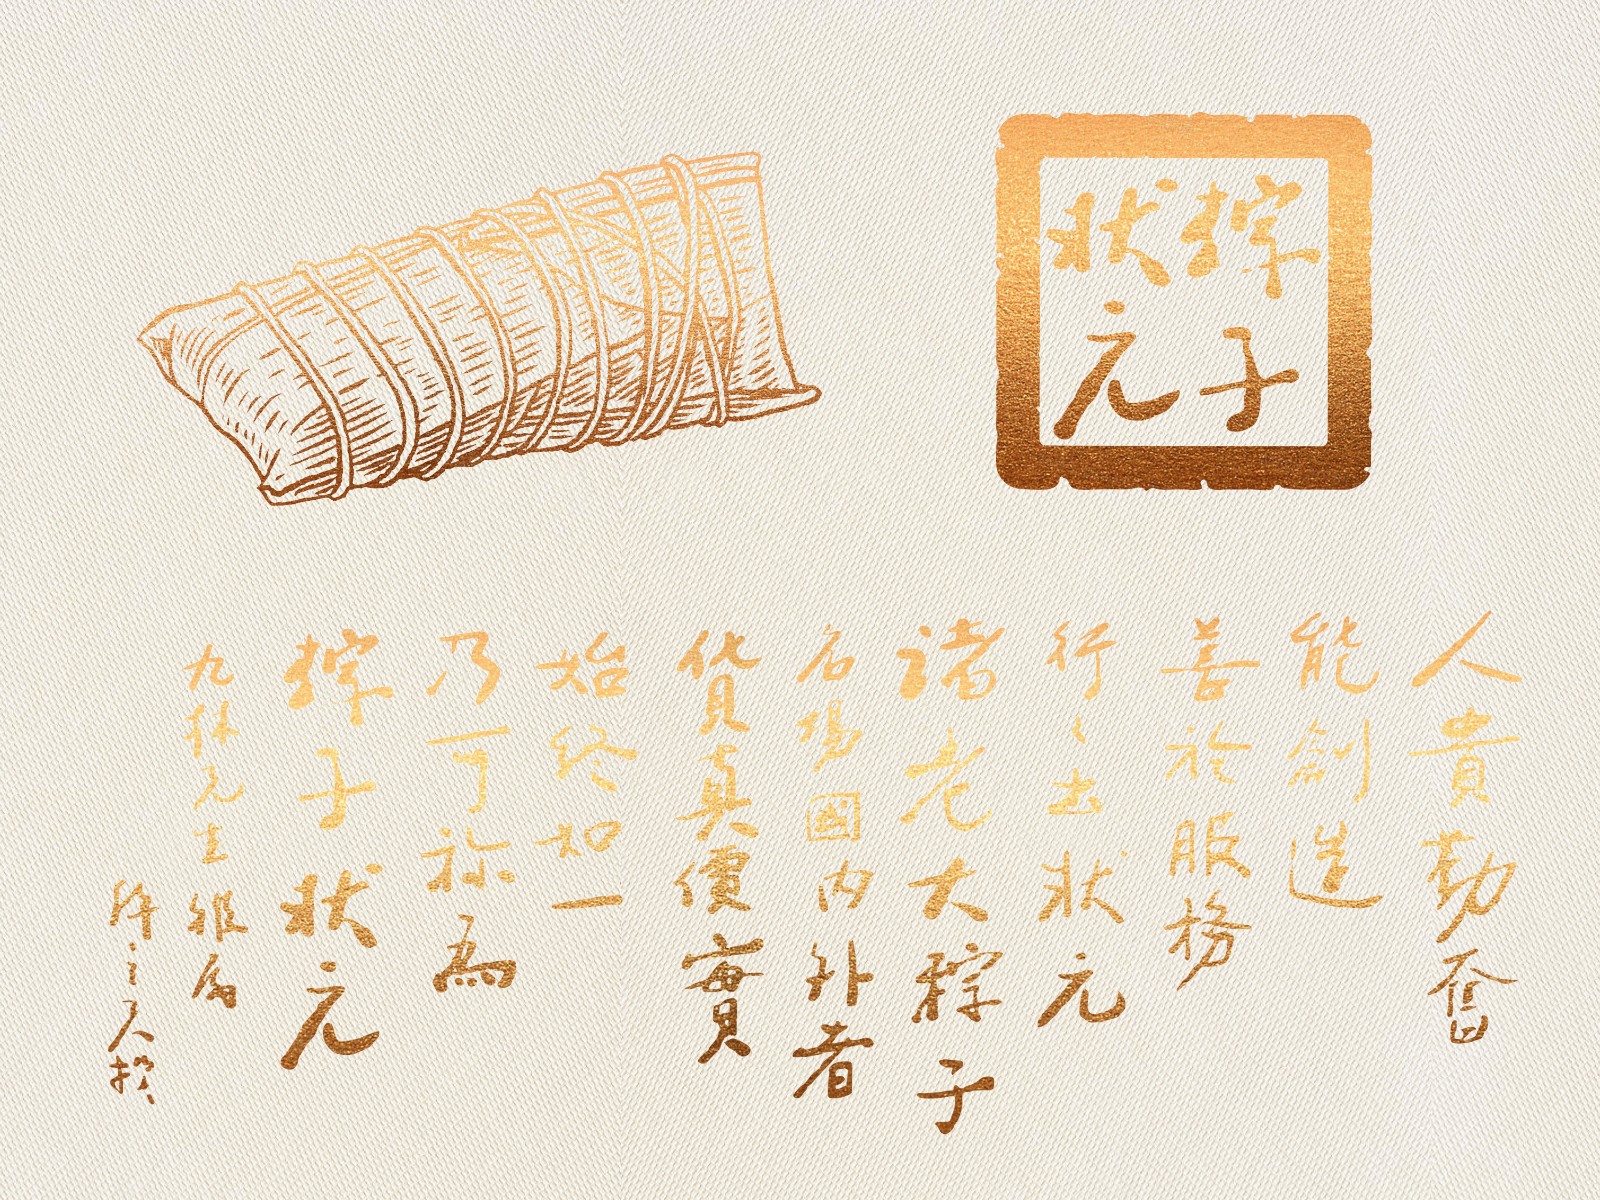 粽子
状元
人貴勤奮
能創造
善於服務
行々出状元
諸老大粽子
名揚國内外者
貨真價實
始終如一
乃可称為
粽子状元
九林先生雅属